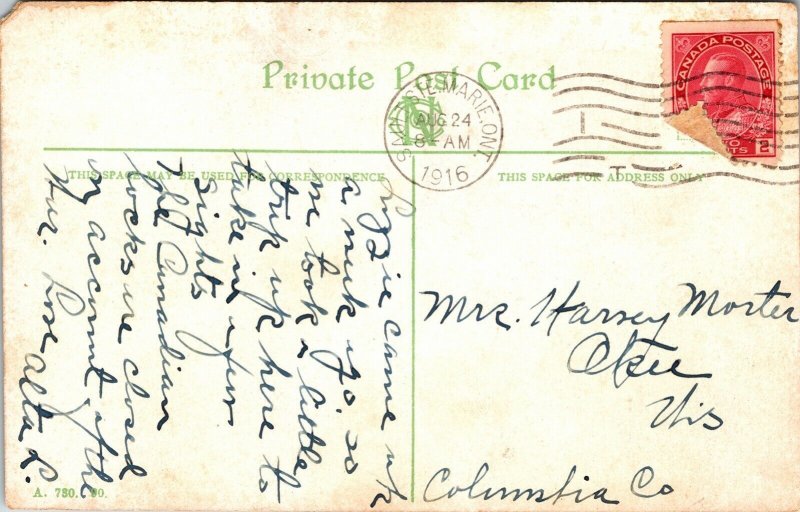 Private Post Card
SAULT STE. MARIE, ONT.
AUG 24
8 - AM
1916
CANADA POSTAGE
2
THIS SPACE MAY BE USED FOR CORRESPONDENCE
THIS SPACE FOR ADDRESS ONLY
Lizzie came up
a week ago. so
we took a little
trip up here to
take in a few
sights
The Canadian
locks are closed
on account of the
War. Love Alta L.
Mrs. Harvey Morter
Okee
Wis
Columbia Co
A. 780. 90.